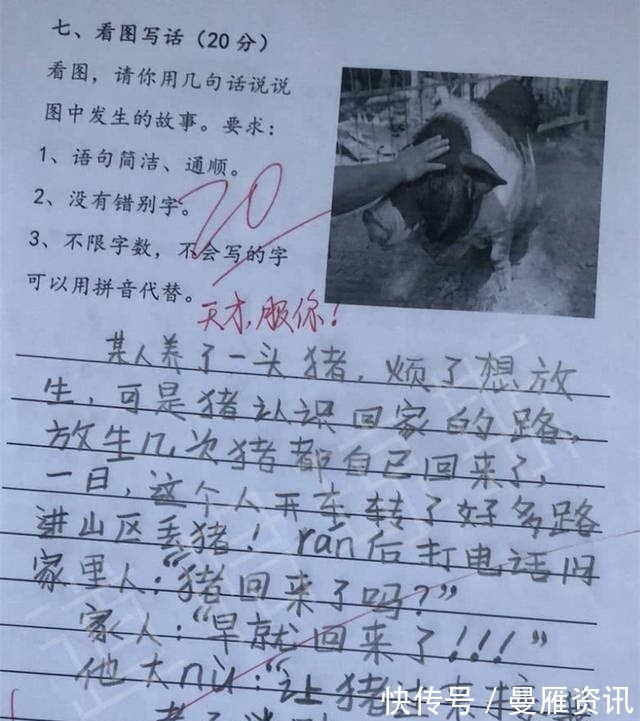 七、看图写话（20分）
看图，请你用几句话说说
图中发生的故事。要求：
1、语句简洁、通顺。
2、没有错别字。
3、不限字数，不会写的字
可以用拼音代替。
20
天才，服你！
某人养了一头猪，烦了想放
生，可是猪认识回家的路，
放生几次猪都自己回来了，
一日，这个人开车转了好多路
进山区丢猪！rán后打电话旧
家里人：“猪回来了吗？”
家人：“早就回来了!!!”
他大nù：“让猪
快传号／曼雁资讯